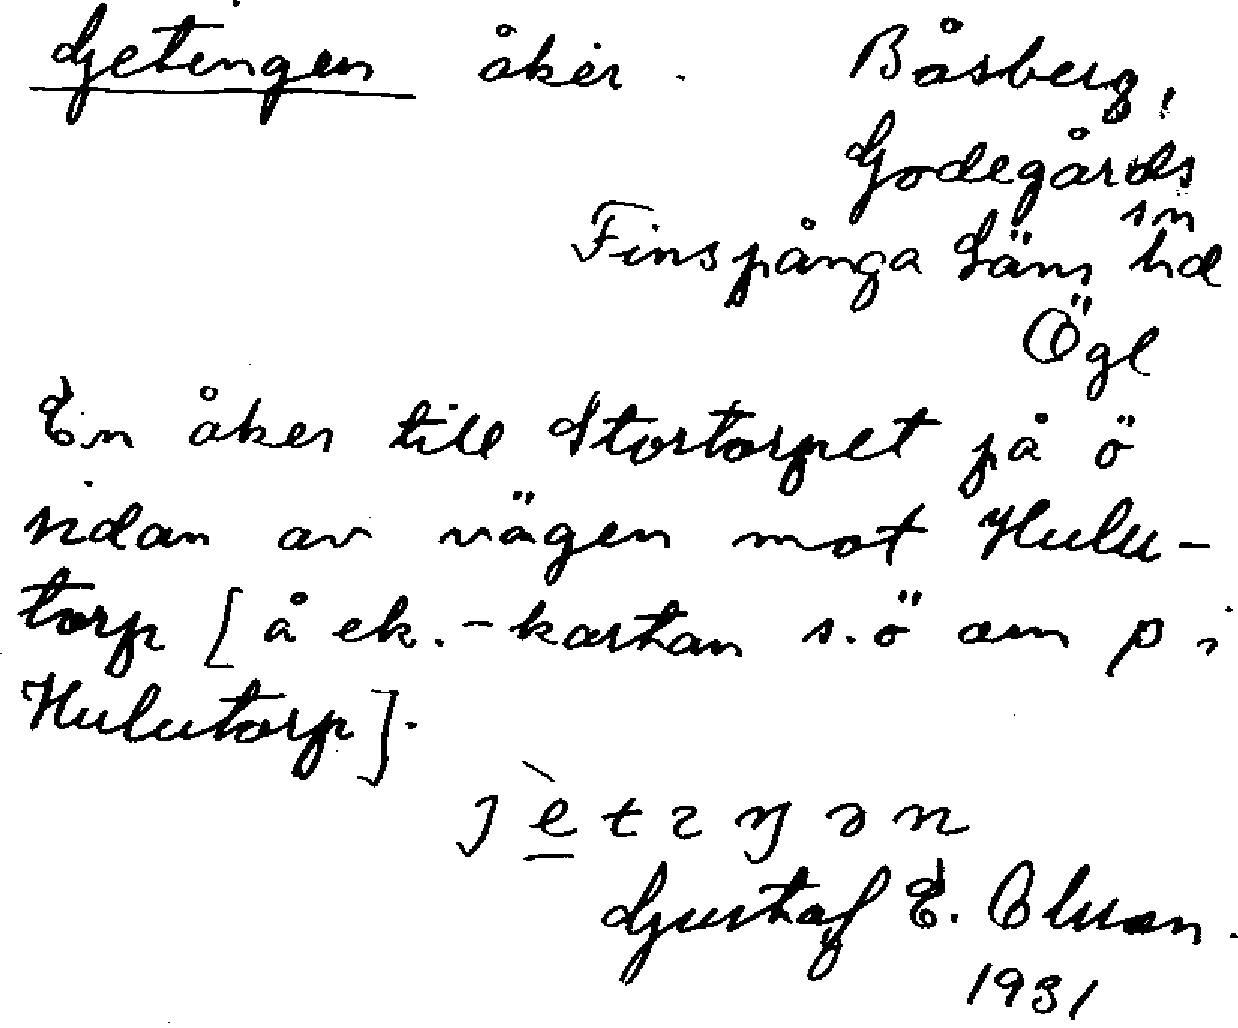 Getingen åker. Båsberg,
Godegårds
sn
Finspånga Läns hd
Ögl
En åker till Stortorpet på ö
sidan av vägen mot Hulu-
torp [å ek.-kartan s.ö om p i
Hulutorp].
Gustaf E. Olsson.
1931